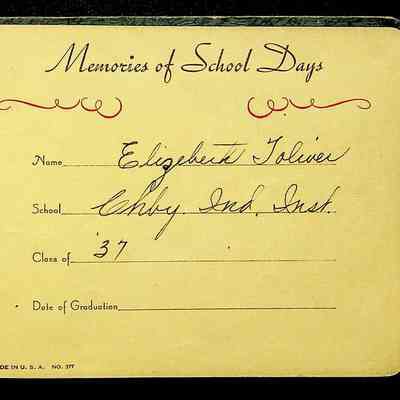 Memories of School Days
Name Elizebeth Toliver
School Chby. Ind. Inst.
Class of '37
Date of Graduation
DE IN U. S. A. NO. 377